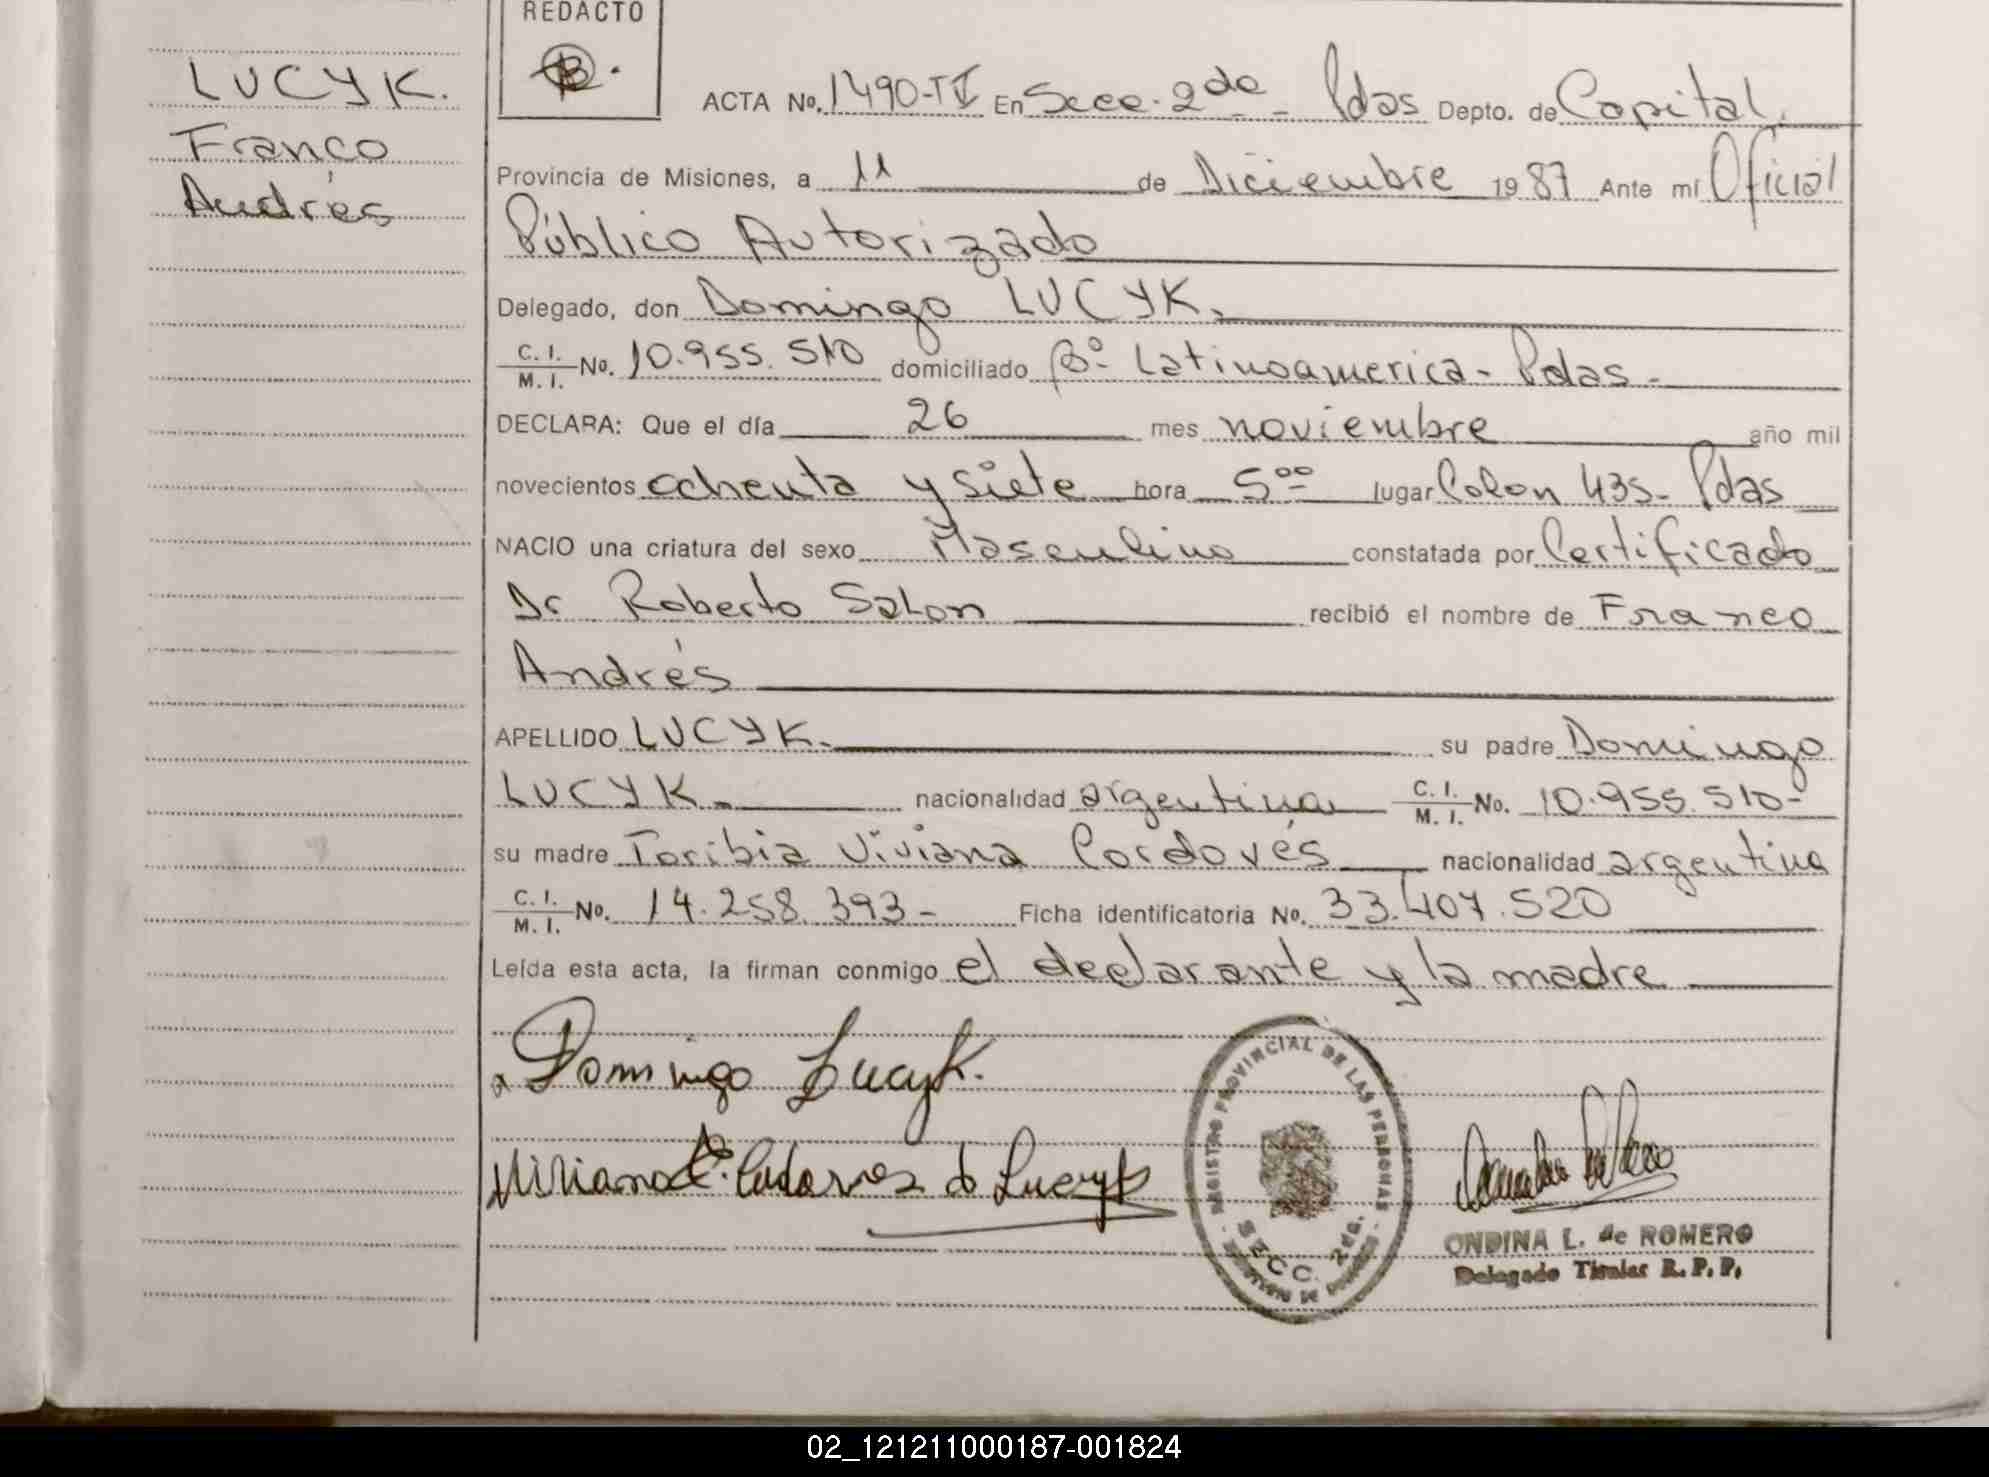 REDACTO
LUCYK.
Franco
Andrés
ACTA No. 1490-TI En Secc. 2da - Pdas Depto. de Capital,
Provincia de Misiones, a 11 de Diciembre 1987 Ante mí Oficial
Público Autorizado
Delegado, don Domingo LUCYK.
C. I. / M. I. No. 10.955.510 domiciliado Bº Latinoamerica - Pdas -
DECLARA: Que el día 26 mes noviembre año mil
novecientos ochenta y siete hora 5oo lugar Colon 435 - Pdas
NACIO una criatura del sexo Masculino constatada por Certificado
Dr Roberto recibió el nombre de Franco
Andrés
APELLIDO LUCYK. su padre Domingo
LUCYK. nacionalidad argentina C. I. / M. I. No. 10.955.510-
su madre Toribia Viviana Cordovés nacionalidad argentina
C. I. / M. I. No. 14.258.393- Ficha identificatoria No. 33.407.520
Leída esta acta, la firman conmigo el declarante y la madre
Domingo Lucyk.
de Lucyk
REGISTRO PROVINCIAL DE LAS PERSONAS
SECC. 2da.
ONDINA L. de ROMERO
Delegado Titular R. P. P.
02_121211000187-001824